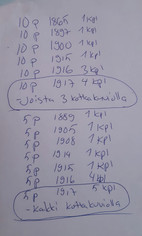 10 p 1865 1 kpl
10 p 1897 1 kpl
10 p 1900 1 kpl
10 p 1915 1 kpl
10 p 1916 3 kpl
10 p 1917 4 kpl
-Joista 3 kotkakuviolla
5 p 1889 1 kpl
5 p 1905 1 kpl
5 p 1908 1 kpl
5 p 1914 1 kpl
5 p 1915 1 kpl
5 p 1916 4 kpl
5 p 1917 5 kpl
-kaikki kotkakuviolla